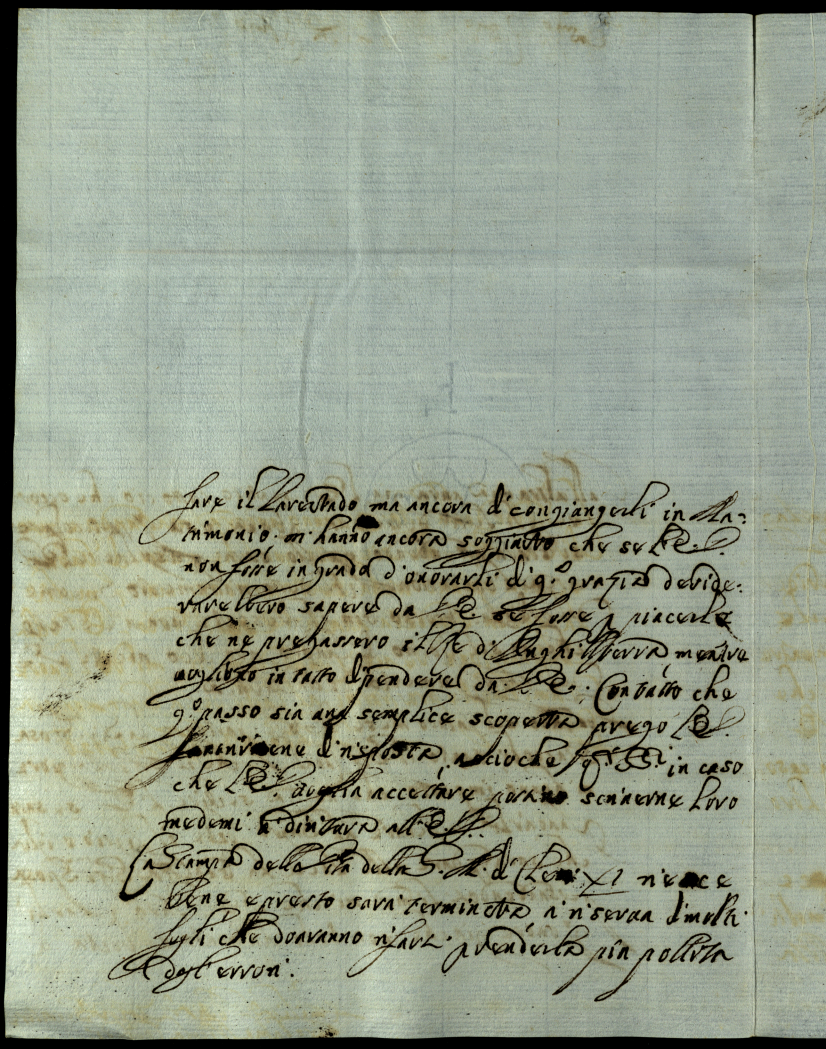 fare il Parentado ma ancora di congiungerli in Ma=
trimonio. mi hanno ancora soggiunto che se V.E.
non fosse in grado d'onorarli di q.a grazia deside=
rarebbero sapere da V.E. se fosse p piacerle
che ne pregassero il Rè d'Inghilterra mentre
vogliono in tutto dipendere da V.E. Con tutto che
q.o passo sia una semplice scoperta prego V.E.
di risposta acciòche q.ti SS.ri in caso
che V.E. voglia accettare possino scriverne loro
medemi a dirittura all'E.V.
La Stampa della Vita della S. M. di Clem: XI riesce
bene e presto sarà terminata a riserva di molti
fogli che dovranno rifarsi p renderla più pollita
dagl'errori.